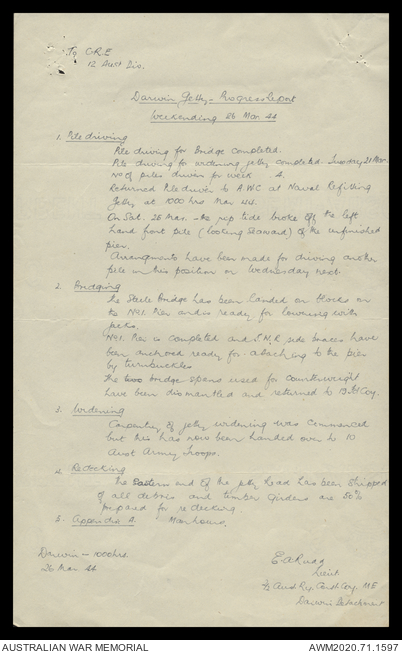 To C.R.E
12 Aust Div.
Darwin Jetty - Progress Report
Weekending 26 Mar 44
1. Pile driving
Pile driving for Bridge completed.
Pile driving for widening jetty completed Tuesday 21 Mar.
No of piles driven for week 4.
Returned Pile driver to A.W.C at Naval Refitting
Jetty at 1000 hrs Mar 44.
On Sat. 25 Mar. the rip tide broke off the left
hand front pile (looking seaward) of the unfinished
pier.
Arrangements have been made for driving another
pile in this position on Wednesday next.
2. Bridging
The Steele Bridge has been landed on blocks on
the No1. Pier and is ready for lowering with
jacks.
No1. Pier is completed and side braces have
been anchored ready for attaching to the pier
by turnbuckles
The two bridge spans used for counterweight
have been dismantled and returned to Coy.
3. Widening
Carpentry of jetty widening was commenced
but this has now been handed over to 10
Aust Army Troops.
4. Redecking
The Eastern end of the jetty head has been stripped
of all debris and timber girders are 50%
prepared for redecking.
5. Appendix A. Manhours.
Darwin - 1000hrs.
26 Mar 44
Lieut
Aust ME
Darwin Detachment
AUSTRALIAN WAR MEMORIAL
AWM2020.71.1597